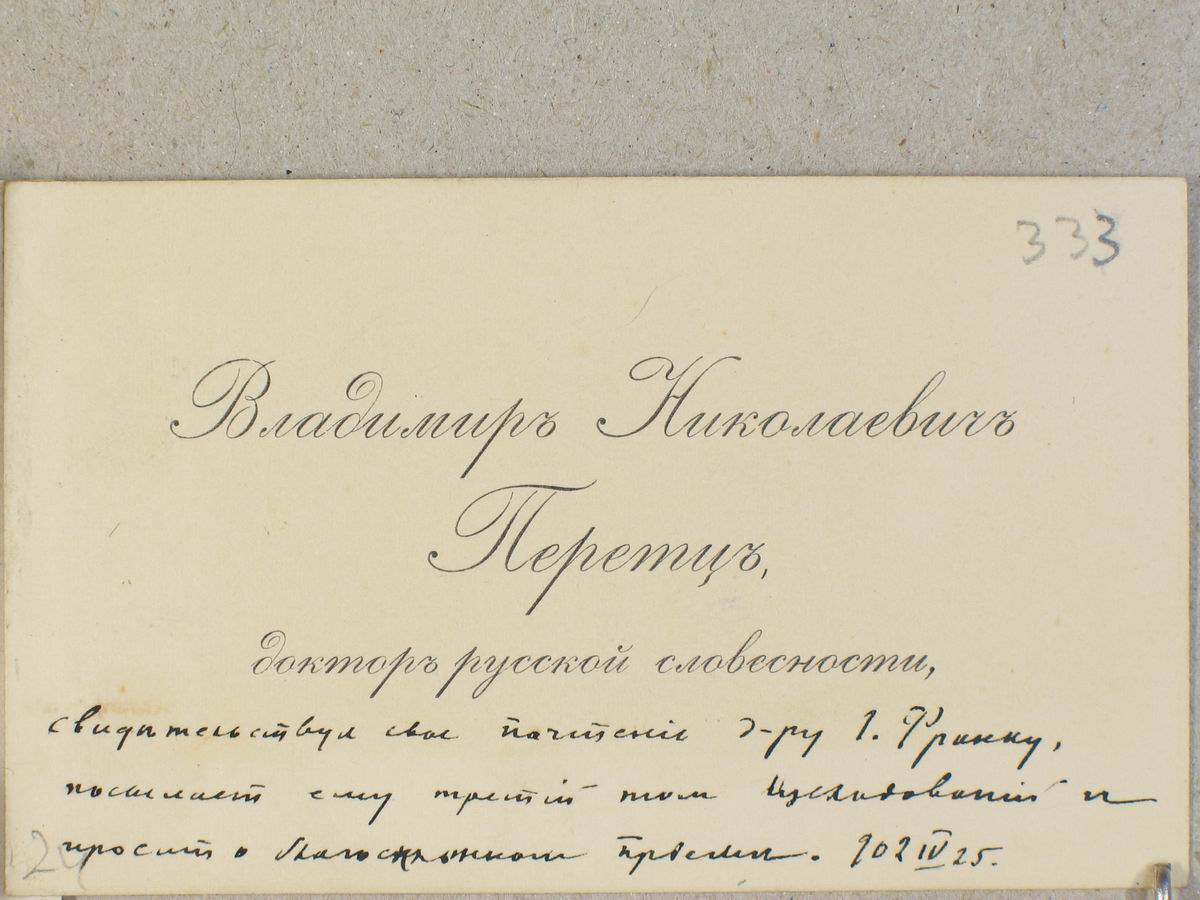 333
Владимиръ Николаевичъ
Перетцъ,
докторъ русской словесности,
свидѣтельствуя свое почтеніе д-ру І. Франку,
посылает ему третій том Изслѣдованій и
просит о благосклонном пріемѣ. 902 IV 25.